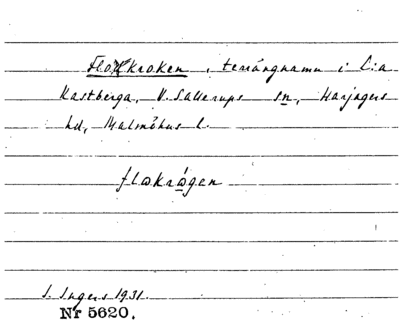 Flokroken, terrängnamn i L:a
Kastberga, V. Sallerups sn, Harjagers
hd, Malmöhus l.
fløkrågen
I. Ingers 1931.
Nr 5620.